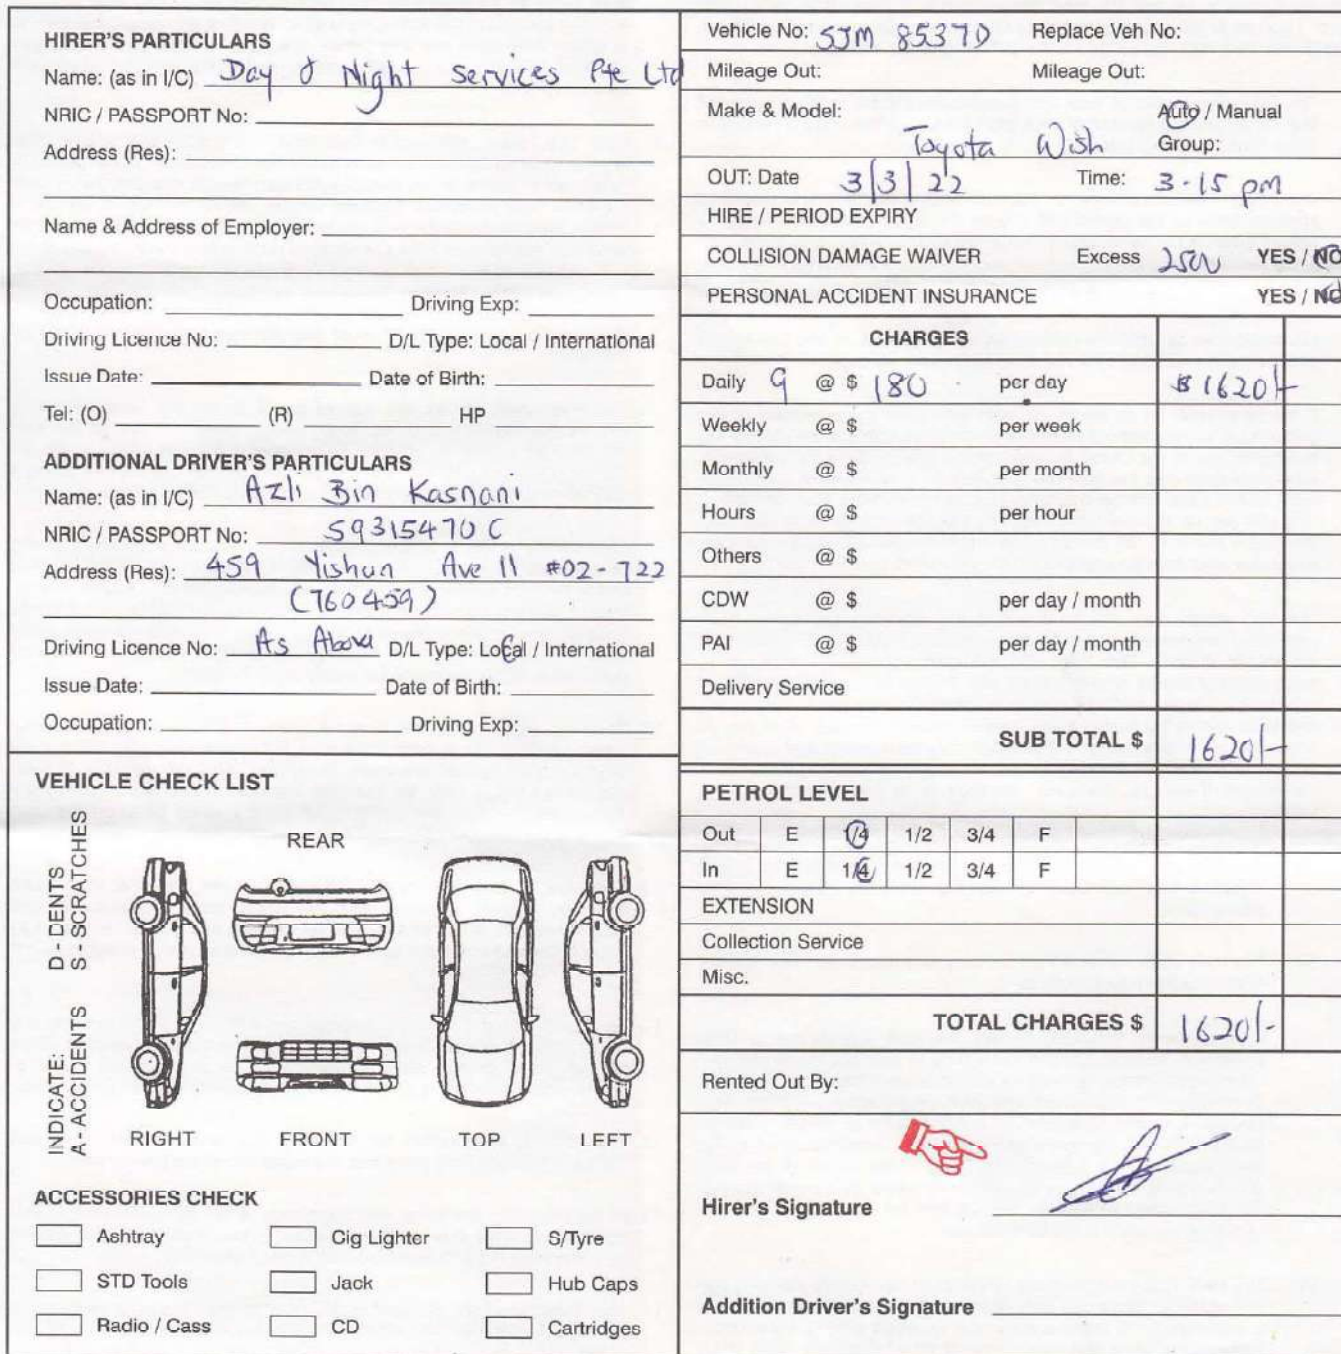 HIRER'S PARTICULARS
Name: (as in I/C) Day & Night Services Pte Ltd
NRIC / PASSPORT No:
Address (Res):
Name & Address of Employer:
Occupation: Driving Exp:
Driving Licence No: D/L Type: Local / International
Issue Date: Date of Birth:
Tel: (O) (R) HP
ADDITIONAL DRIVER'S PARTICULARS
Name: (as in I/C) Azli Bin Kasnani
NRIC / PASSPORT No: S9315470C
Address (Res): 459 Yishun Ave 11 #02-722
(760459)
Driving Licence No: As Above D/L Type: Local / International
Issue Date: Date of Birth:
Occupation: Driving Exp:
VEHICLE CHECK LIST
INDICATE: D - DENTS
A - ACCIDENTS S - SCRATCHES
REAR
RIGHT FRONT TOP LEFT
ACCESSORIES CHECK
Ashtray Cig Lighter S/Tyre
STD Tools Jack Hub Caps
Radio / Cass CD Cartridges
Vehicle No: SJM 8537D Replace Veh No:
Mileage Out: Mileage Out:
Make & Model: Auto / Manual
Toyota Wish Group:
OUT: Date 3/3/22 Time: 3-15 pm
HIRE / PERIOD EXPIRY
COLLISION DAMAGE WAIVER Excess 2500 YES / NO
PERSONAL ACCIDENT INSURANCE YES / NO
CHARGES
Daily 9 @ $ 180 per day $1620/-
Weekly @ $ per week
Monthly @ $ per month
Hours @ $ per hour
Others @ $
CDW @ $ per day / month
PAI @ $ per day / month
Delivery Service
SUB TOTAL $ 1620/-
PETROL LEVEL
Out E 1/4 1/2 3/4 F
In E 1/4 1/2 3/4 F
EXTENSION
Collection Service
Misc.
TOTAL CHARGES $ 1620/-
Rented Out By:
Hirer's Signature
Addition Driver's Signature